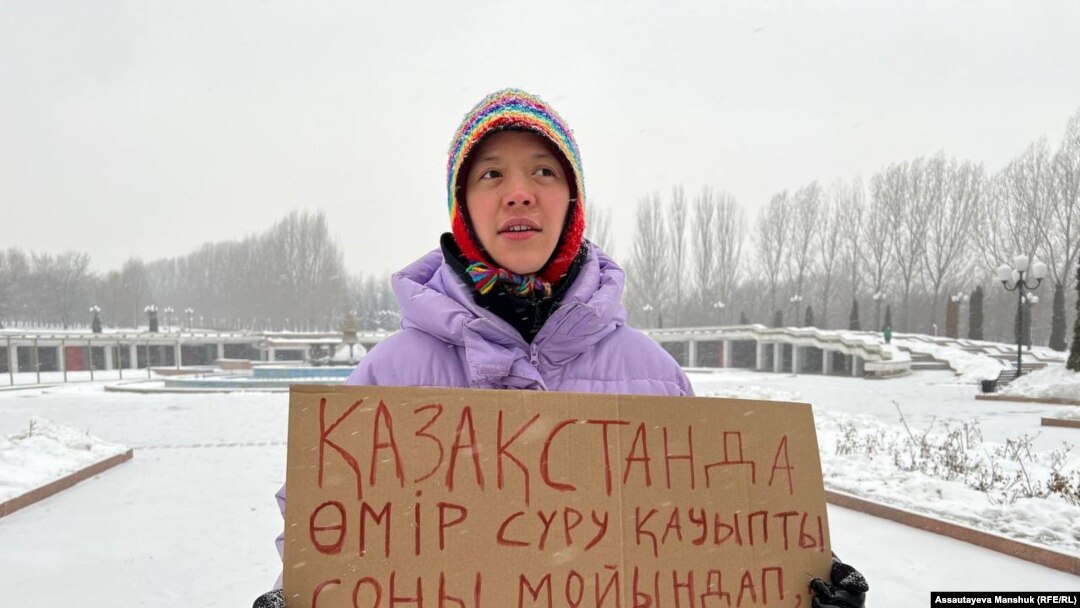 ҚАЗАҚСТАНДА
ӨМІР СУРУ ҚАУЫПТЫ
СОНЫ МОЙЫНДАП,
Assautayeva Manshuk (RFE/RL)